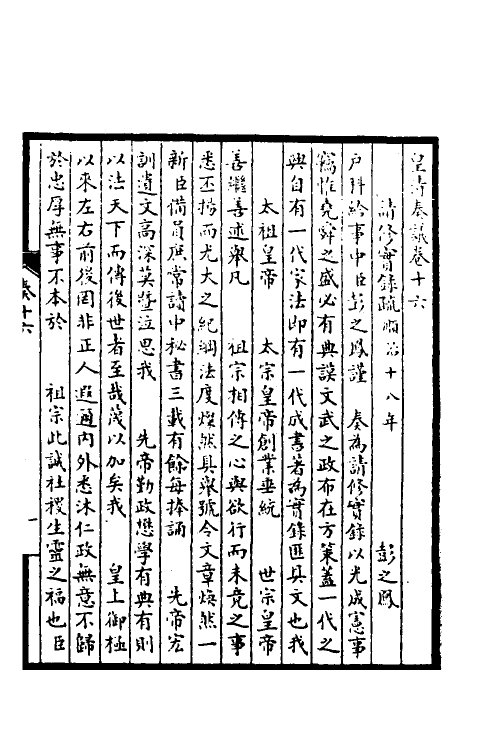 皇清奏議卷十六
請修實錄疏順治十八年 彭之鳳
戶科給事中臣彭之鳳謹 奏為請修實錄以光成憲事
竊惟堯舜之盛必有典謨文武之政布在方策蓋一代之
興自有一代家法即有一代成書著為實錄匪具文也我
太祖皇帝 太宗皇帝創業垂統 世宗皇帝
善繼善述舉凡 祖宗相傳之心與欲行而未竟之事
悉丕揚而光大之紀綱法度燦然具舉號令文章煥然一
新臣備員庶常讀中秘書三載有餘每捧誦 先帝宏
訓遺文高深莫罄泣思我 先帝勤政懋學有典有則
以法天下而傳後世者至哉蔑以加矣我 皇上御極
以來左右前後罔非正人遐邇內外悉沐仁政無意不歸
於忠厚無事不本於 祖宗此誠社稷生靈之福也臣
奏十六
一